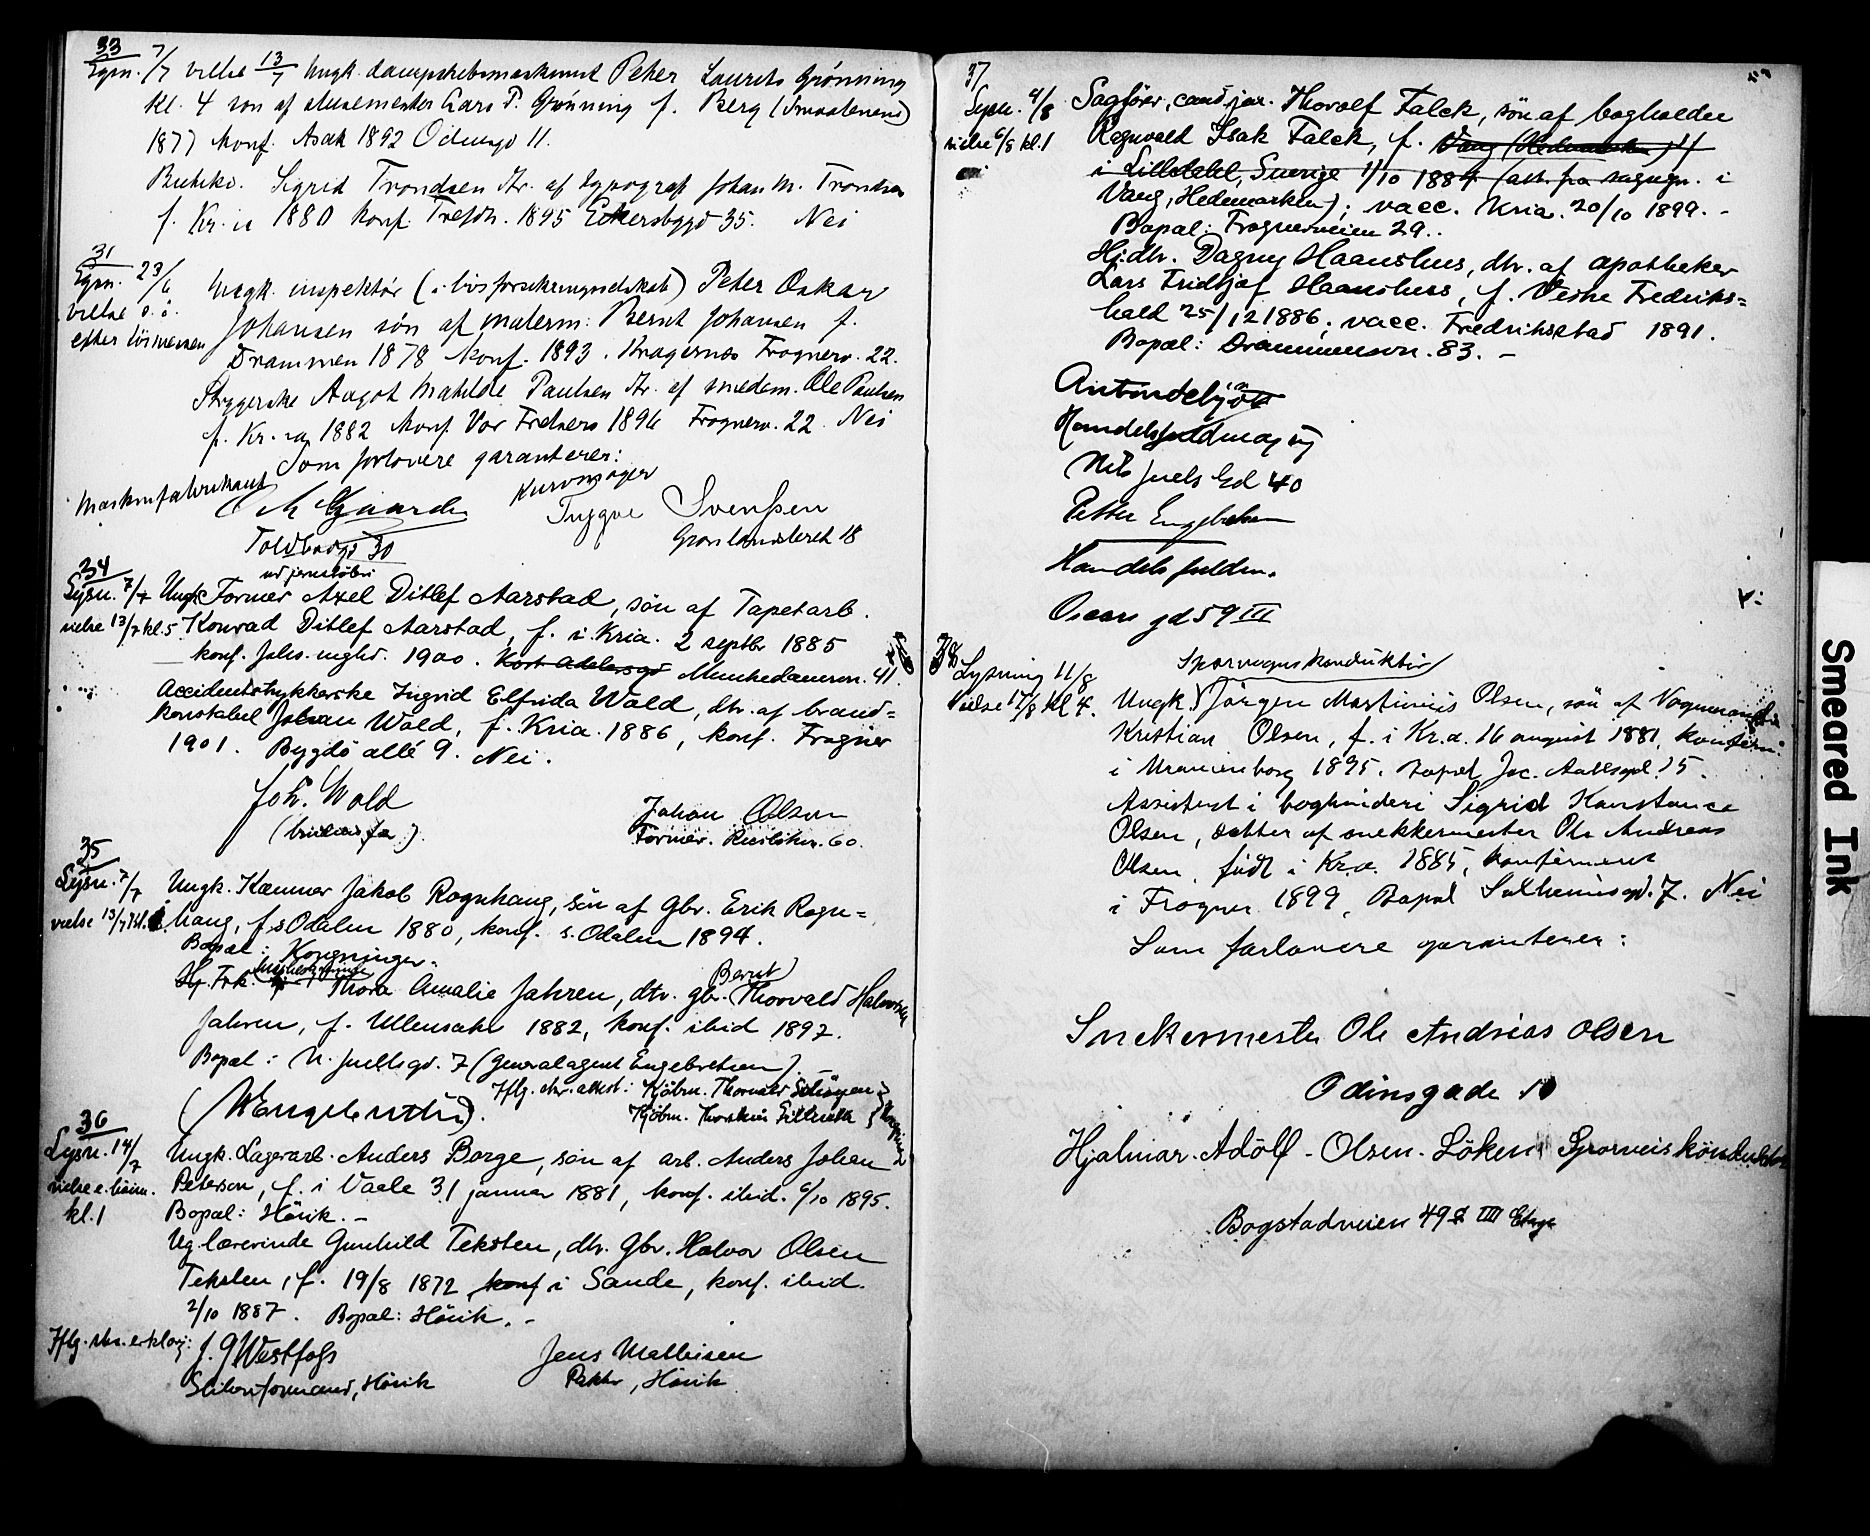 33
Lysn. 7/7 vielse 13/7 Ungk. dampskibsmaskinist Peter Laurits Grønning
kl. 4 søn af Lars P. Grønning f. Berg (Smaalenene)
1877 konf. Asak 1892 Odinsgd 11.
Sigrid Trondsen dtr. af typograf Johan M. Trondsen
f. Kr.ia 1880 konf. Trefdh. 1895 Eckersbggd 35. Nei
31
Lysn. 23/6 Ungk. inspektør (i livsforsikringsselskab) Peter Oskar
vielse
efter Johansen søn af malerm: Bernt Johansen f.
Drammen 1878 konf. 1893. Kragerøes Frognerv. 22.
Strygerske Aagot Mathilde Paulsen dtr. af smedem. Ole Paulsen
f. Kr.ia 1882 konf Vor Frelsers 1896 Frognerv. 22. Nei
Som forlovere garanterer:
Maskinfabrikant
Kurvmager
Gaarder
Trygve Svenssen
Toldbodgd 30
Grønlandsleret 18
34
ved jernstøberi
Lysn. 7/7 Ungk. Former Axel Ditlef Aarstad, søn af Tapetarb.
vielse 13/7 kl. 5. Konrad Ditlef Aarstad, f. i Kria. 2 septbr 1885
konf. Johs. mghd. 1900. Kort Adelersgd Munkedamsvn. 41.
Accidentstrykkerske Ingrid Elfrida Wold, dtr. af brand=
konstabel Johan Wold, f. Kria. 1886, konf. Frogner
1901. Bygdø allé 9. Nei.
Joh. Wold
Johan Olsen
Former.
60.
35
Lysn. 7/7 Ungk. Kæmner Jakob Rognhaug, søn af Gbr. Erik Rogn=
vielse 13/7 kl. haug, f. s. Odalen 1880, konf. s. Odalen 1894.
Bopæl: Kongsvinger.
Bernt
Frk. Thora Amalie Jahren, dtr. gbr. Thorvald Halvorsen
Jahren, f. Ullensaker 1882, konf. ibid 1897.
Bopæl: N. Juelsgd. 7 (Generalagent Engebretsen).
Iflg. skr. attest: Kjøbm. Thorvald
Kjøbm.
36
Lysn. 14/7 Ungk. Lagerarb. Anders Borge, søn af arb. Anders Johan
vielse Peterson, f. i Vaale 31 januar 1881, konf. ibid. 6/10 1895.
kl. 1 Bopæl: Hørik. –
Ug. lærerinde Gunhild Teksten, dtr. Gbr. Halvor Olsen
Teksten, f. 19/8 1872 konf i Sande, konf. ibid.
2/10 1887. Bopæl: Hørik. –
Iflg. skr. erklæg: J. G. Westfoss
Jens Mathisen
Sliberiformand, Hørik
Hørik
37
Lysn. 4/8 Sagfører, cand. jur. Thorolf Falck, søn af bogholder
vielse 6/8 kl. 1 Regnvald Isak Falck, f. Vang (Hedemarken)
i Lilledalel, Sverige 11/10 1884 (att. fra sognepr. i
Vang, Hedemarken); vacc. Kria. 20/10 1899. –
Bopæl: Frognerveien 29..
Hjdtr. Dagny Haanshus, dtr. af apotheker
Lars Fridtjof Haanshus, f. Vestre Fredriks=
hald 25/12 1886; vacc. Fredrikstad 1891.
Bopæl: Drammensvn. 83. –
Nils Juels Gd 40
Petter Engebretsen
Handelsfuldm.
Oscars gd 59 III
38
Sporvognskonduktør
Lysning 11/8
Vielse 17/8 kl 4. Ungk. Jørgen Martinius Olsen, søn af Vognmand
Kristian Olsen, f. i Kr.a. 16 august 1881, konfirm.
i Uranienborg 1895. Bopæl Jac. Aallsgd. 15.
Assistent i bogbinderi Sigrid Konstance
Olsen, datter af snekkermester Ole Andreas
Olsen, født i Kr.a. 1885, konfirmeret
i Frogner 1899, Bopæl Solheimsgd. 7. Nei
Som forlovere garanterer:
Snekermester Ole Andreas Olsen
Odinsgade 10
Hjalmar. Adolf - Olsen. Löken Sporveiskonduktør
Bogstadveien 49 IIII Etage
Smeared Ink